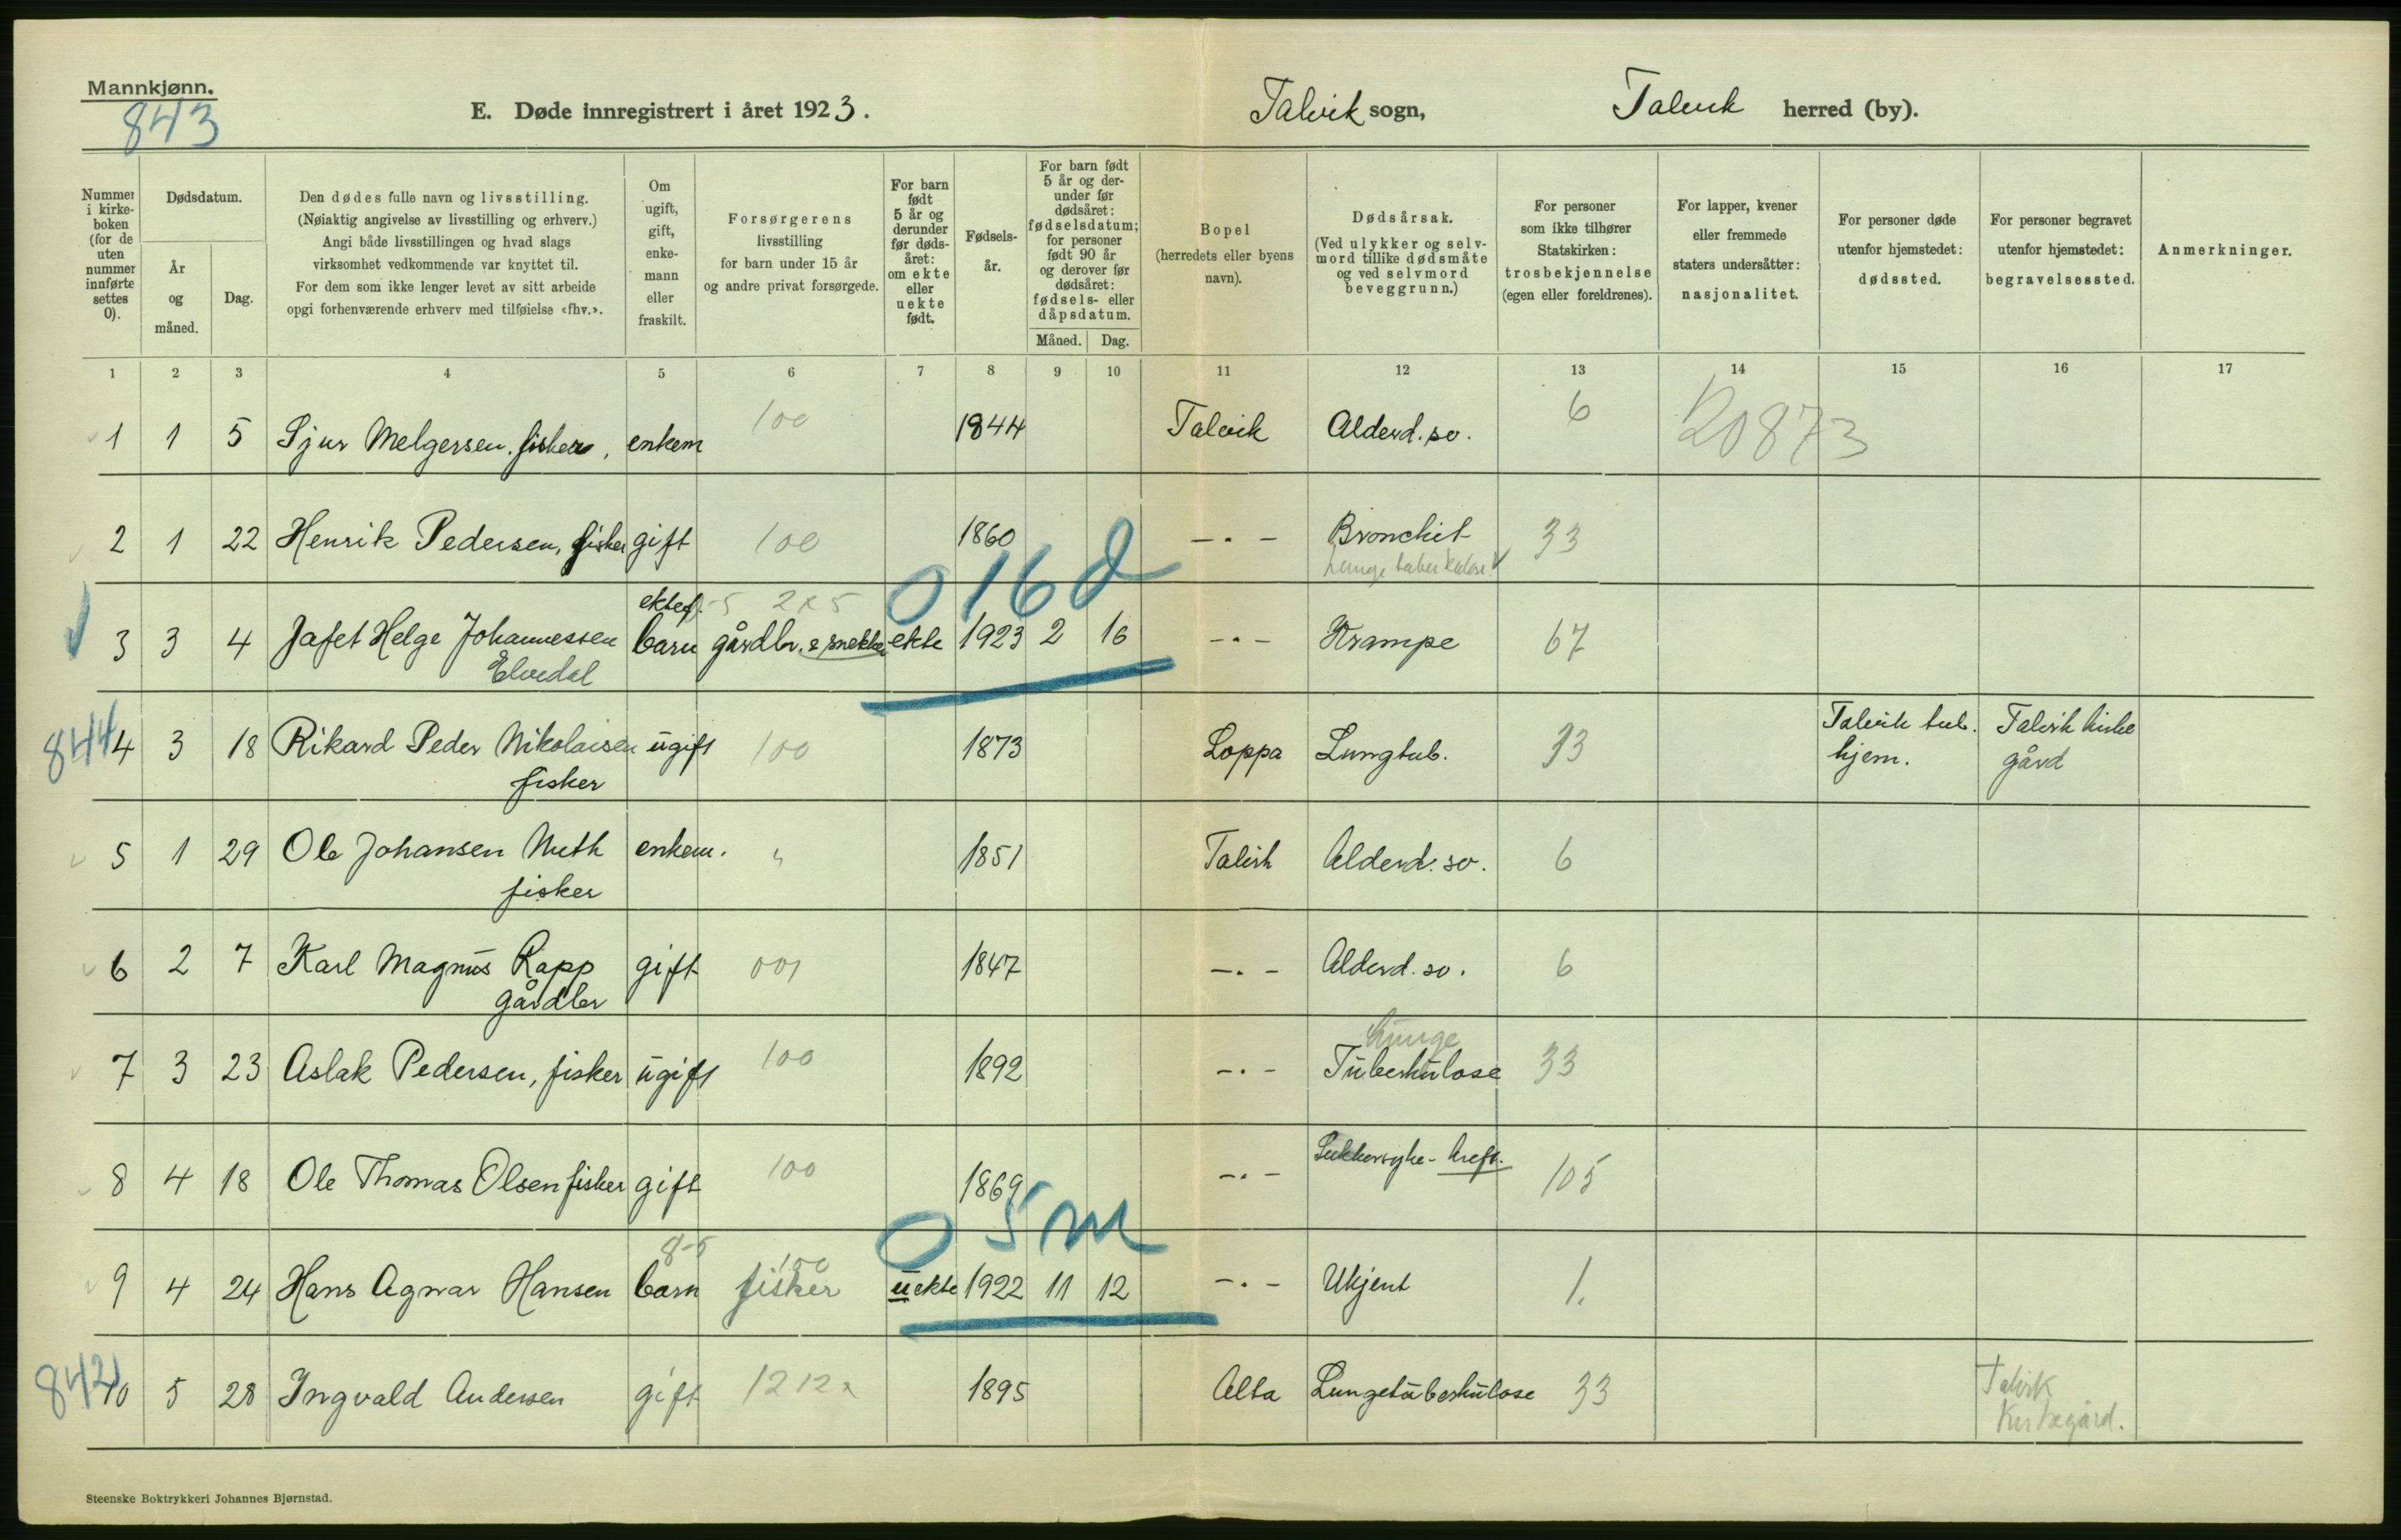 Mannkjønn.
843
E. Døde innregistrert i året 1923.
Talvik sogn,
Talvik herred (by).
Nummer i kirkeboken (for de uten nummer innførte settes 0).
Dødsdatum.
År og måned.
Dag.
Den dødes fulle navn og livsstilling.
(Nøiaktig angivelse av livsstilling og erhverv.)
Angi både livsstillingen og hvad slags
virksomhet vedkommende var knyttet til.
For dem som ikke lenger levet av sitt arbeide
opgi forhenværende erhverv med tilføielse «fhv.».
Om ugift, gift, enkemann eller fraskilt.
Forsørgerens
livsstilling
for barn under 15 år
og andre privat forsørgede.
For barn født 5 år og derunder før dødsåret: om ekte eller uekte født.
Fødselsår.
For barn født 5 år og derunder før dødsåret: fødselsdatum; for personer født 90 år og derover før dødsåret: fødsels- eller dåpsdatum.
Måned.
Dag.
Bopel
(herredets eller byens
navn).
Dødsårsak.
(Ved ulykker og selvmord tillike dødsmåte og ved selvmord beveggrunn.)
For personer
som ikke tilhører
Statskirken:
trosbekjennelse
(egen eller foreldrenes).
For lapper, kvener
eller fremmede
staters undersåtter:
nasjonalitet.
For personer døde
utenfor hjemstedet:
dødssted.
For personer begravet
utenfor hjemstedet:
begravelsessted.
Anmerkninger.
1 2 3 4 5 6 7 8 9 10 11 12 13 14 15 16 17
1 1 5 Sjur Melgersen. fisker, enkem 100 1844 Talvik Alderd. sv. 6 20873
2 1 22 Henrik Pedersen, fisker gift 100 1860 –.– Bronchit 33
Lunge tuberkulose
016d
ektef. 2x5
3 3 4 Jafet Helge Johannessen barn gårdbr. & snekker ekte 1923 2 16 –.– Krampe 67
Elvedal
844
4 3 18 Rikard Peder Nikolaisen ugift 100 1873 Loppa Lungtub. 33 Talvik tub. hjem. Talvik kirke gård
fisker
5 1 29 Ole Johansen Muth enkem. " 1851 Talvik Alderd. sv. 6
fisker
6 2 7 Karl Magnus Rapp gift 001 1847 –.– Alderd. sv. 6
gårdbr
Lunge
7 3 23 Aslak Pedersen, fisker ugift 100 1892 –.– Tuberkulose 33
8 4 18 Ole Thomas Olsen fisker gift 100 1869 –.– Sukkersyke - kreft. 105
05m
8-5 100
9 4 24 Hans Agnar Hansen barn fisker uekte 1922 11 12 –.– Ukjent 1.
842
10 5 28 Ingvald Andersen gift 1212x 1895 Alta Lungetuberkulose 33 Talvik Kirkegård.
Steenske Boktrykkeri Johannes Bjørnstad.